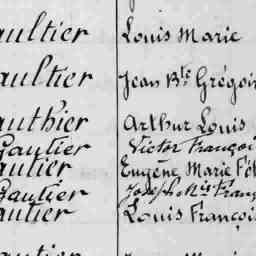 aultier Louis Marie
aultier Jean Bte Grégoi
authier Arthur Louis
Gautier Victor Françoi
autier Eugène Marie Fél
Gautier Joseph Mis Franç
autier Louis Françoi